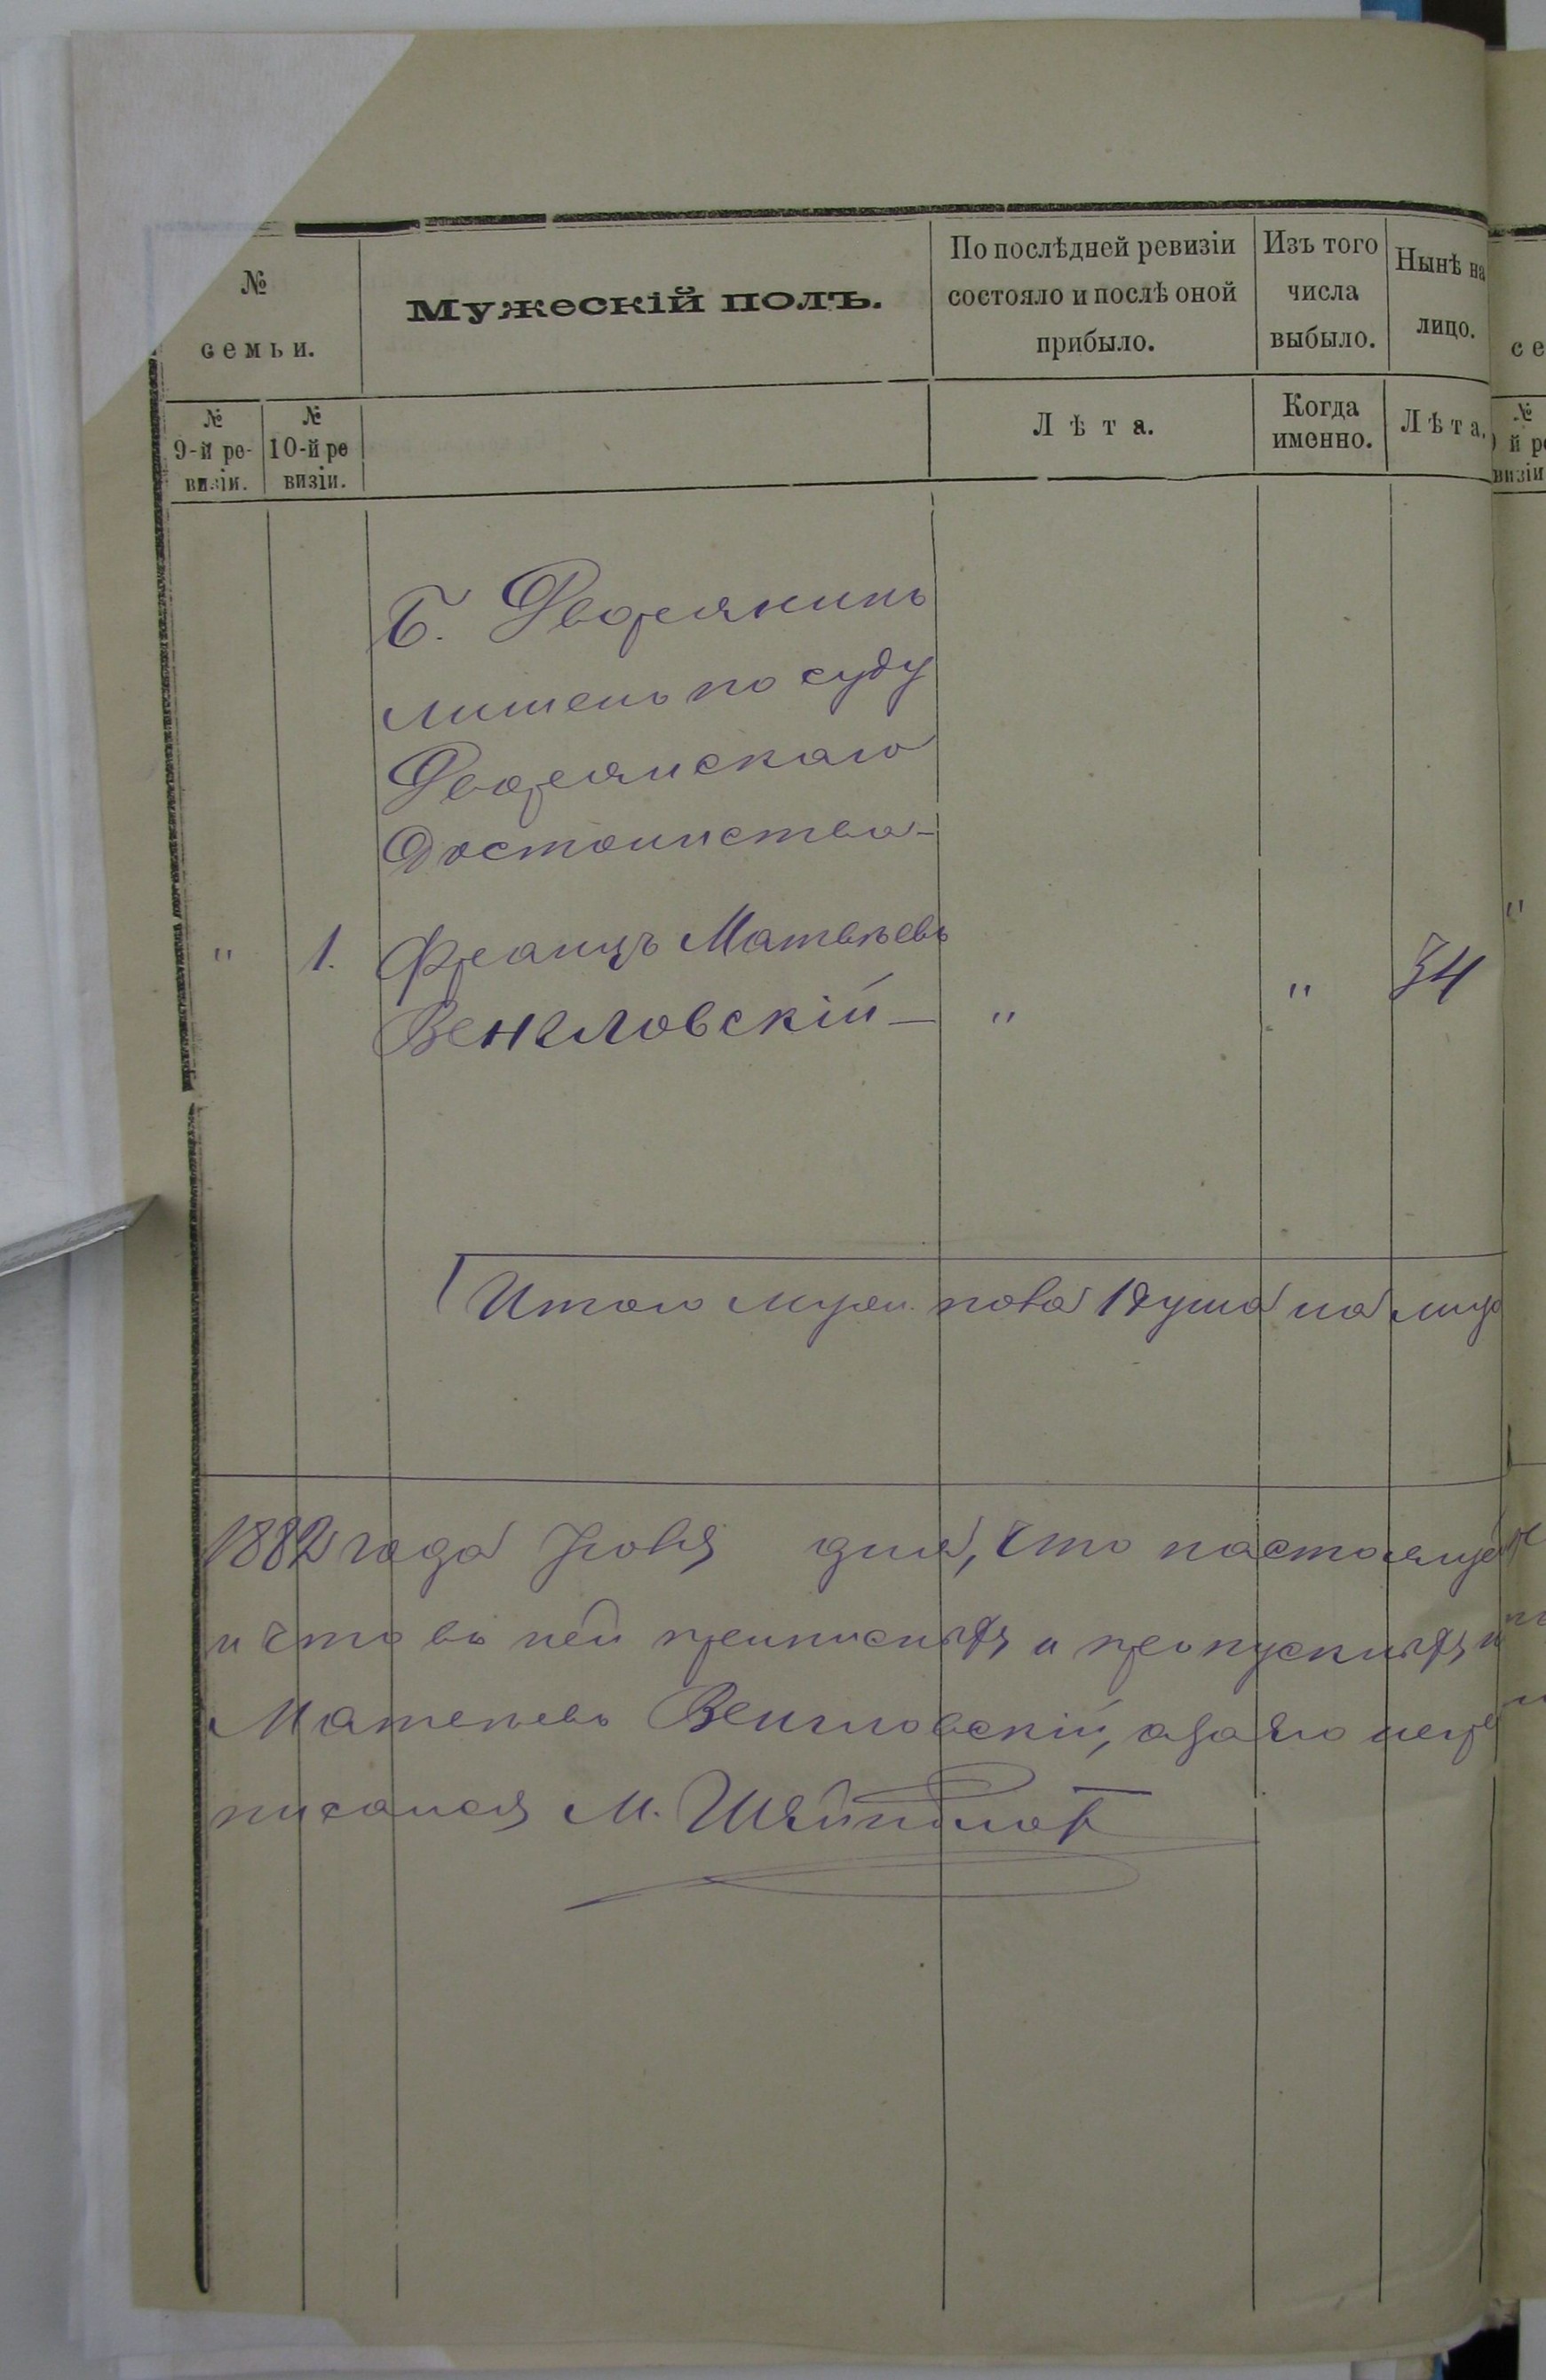 №
семьи.
Мужескій полъ.
По послѣдней ревизіи
состояло и послѣ оной
прибыло.
Изъ того
числа
выбыло.
Нынѣ на
лицо.
№
9-й ре-
визіи.
№
10-й ре
визіи.
Лѣта.
Когда
именно.
Лѣта.
се
№
й ре
визіи
Б. Дворянинъ
лишенъ по суду
Дворянскаго
Достоинства-
" 1. Францъ Матвѣевъ
Венгловскій — " " 34
Итого муж. пола 1 душа на лицо
1882 года Іюля дня, что настояще
и что въ ней прописныхъ и пропускныхъ н
Матвѣевъ Венгловскій, а за его негр
писался М.